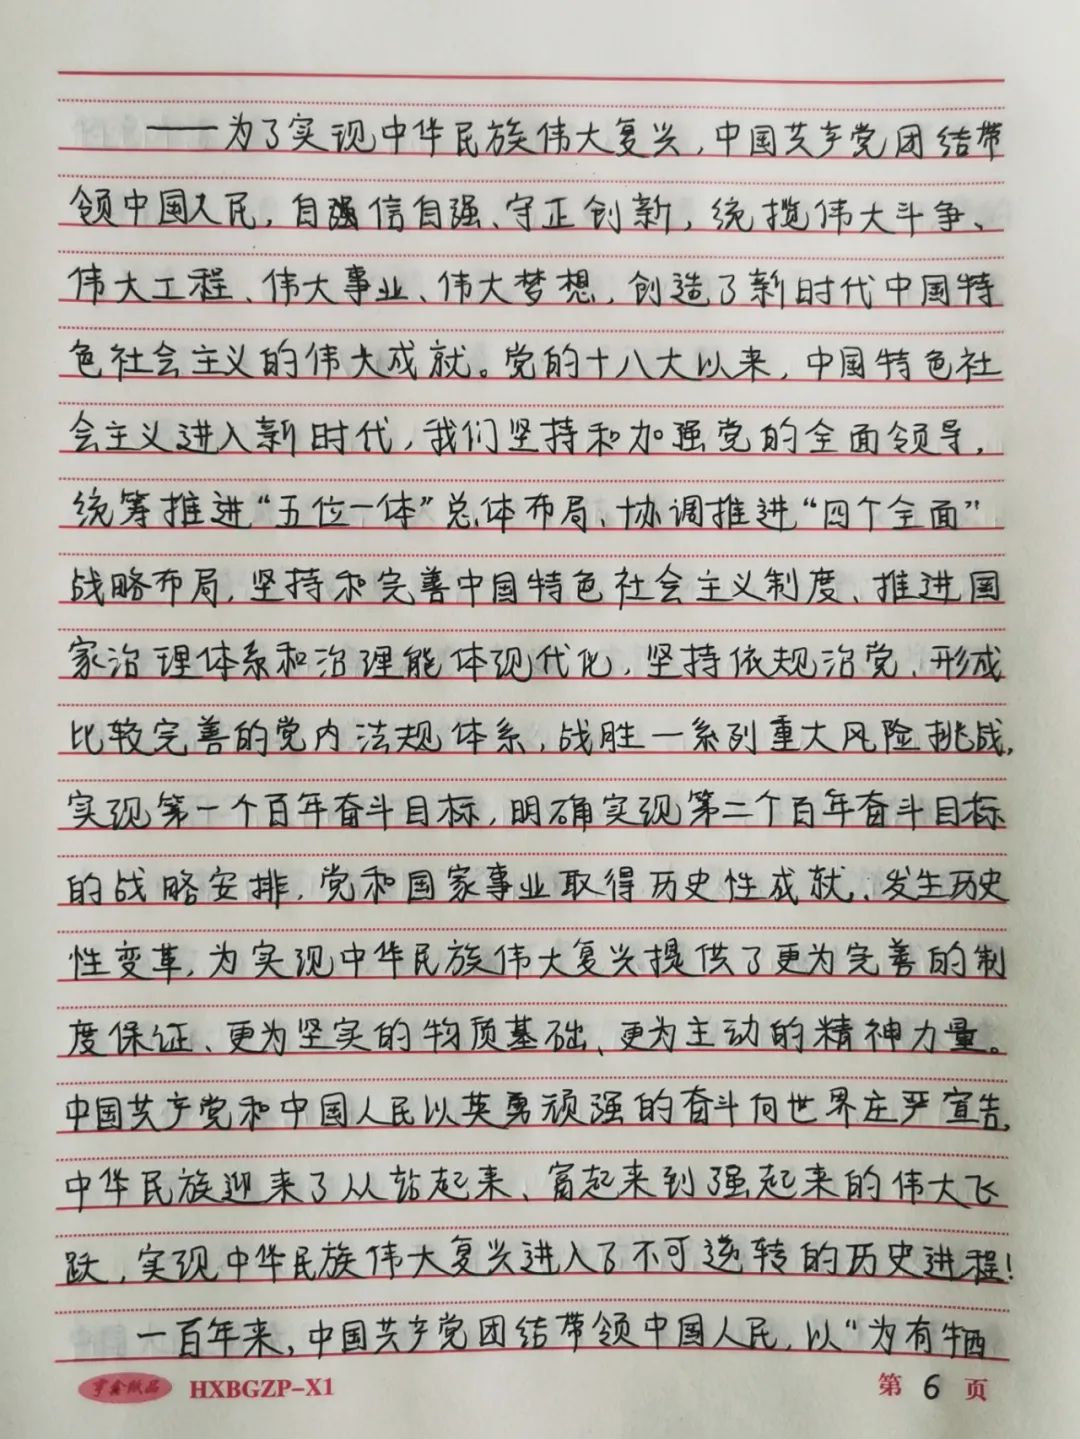 ——为了实现中华民族伟大复兴,中国共产党团结带
领中国人民,自强信自强、守正创新,统揽伟大斗争、
伟大工程、伟大事业、伟大梦想,创造了新时代中国特
色社会主义的伟大成就。党的十八大以来,中国特色社
会主义进入新时代,我们坚持和加强党的全面领导,
统筹推进“五位一体”总体布局、协调推进“四个全面”
战略布局,坚持和完善中国特色社会主义制度、推进国
家治理体系和治理能体现代化,坚持依规治党、形成
比较完善的党内法规体系,战胜一系列重大风险挑战,
实现第一个百年奋斗目标,明确实现第二个百年奋斗目标
的战略安排,党和国家事业取得历史性成就、发生历史
性变革,为实现中华民族伟大复兴提供了更为完善的制
度保证、更为坚实的物质基础、更为主动的精神力量。
中国共产党和中国人民以英勇顽强的奋斗向世界庄严宣告,
中华民族迎来了从站起来、富起来到强起来的伟大飞
跃,实现中华民族伟大复兴进入了不可逆转的历史进程!
一百年来,中国共产党团结带领中国人民,以“为有牺
亨鑫纸品 HXBGZP-X1 第 6 页